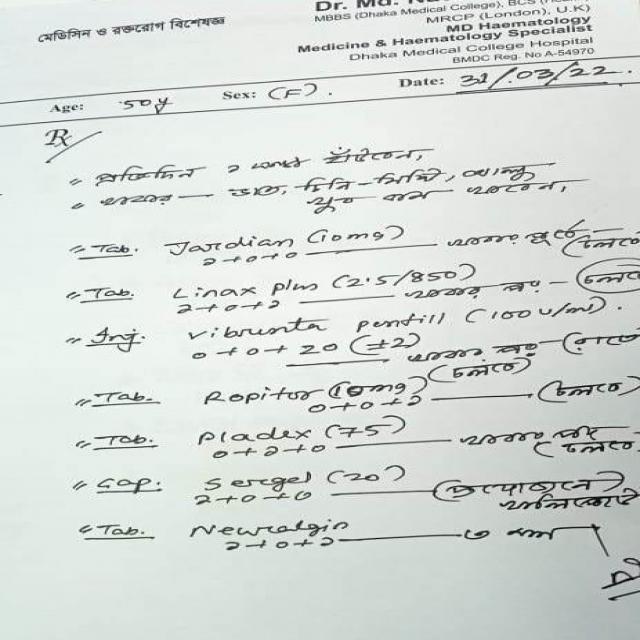 মেডিসিন ও রক্তরোগ বিশেষজ্ঞ
Dr. Md.
MBBS (Dhaka Medical College), BCS
MRCP (London), U.K)
MD Haematology
Medicine & Haematology Specialist
Dhaka Medical College Hospital
BMDC Reg. No A-54970
Age: 50y Sex: (F). Date: 31/03/22
Rx
প্রতিদিন ১ ঘন্টা হাঁটবেন,
খাবার — ভাত, চিনি-মিষ্টি, আলু
খুব কম খাবেন,
Tab. Jardian (10mg)
১+০+০ খাবার পূর্বে — (চলবে)
Tab. Linax plus (2.5/850)
১+০+১ খাবার পর — চলবে
Inj. Vibrenta penfill (100 u/ml).
0+0+20 (±2) খাবার পর — (রাতে)
(চলবে)
Tab. Ropitor (10mg)
০+০+১ (চলবে)
Tab. Pladex (75)
০+১+০ খাবার পর
(চলবে)
Cap. Sergel (20)
১+০+০ (প্রয়োজনে)
খালিপেটে
Tab. Newralgin
১+০+১ ৩ মাস